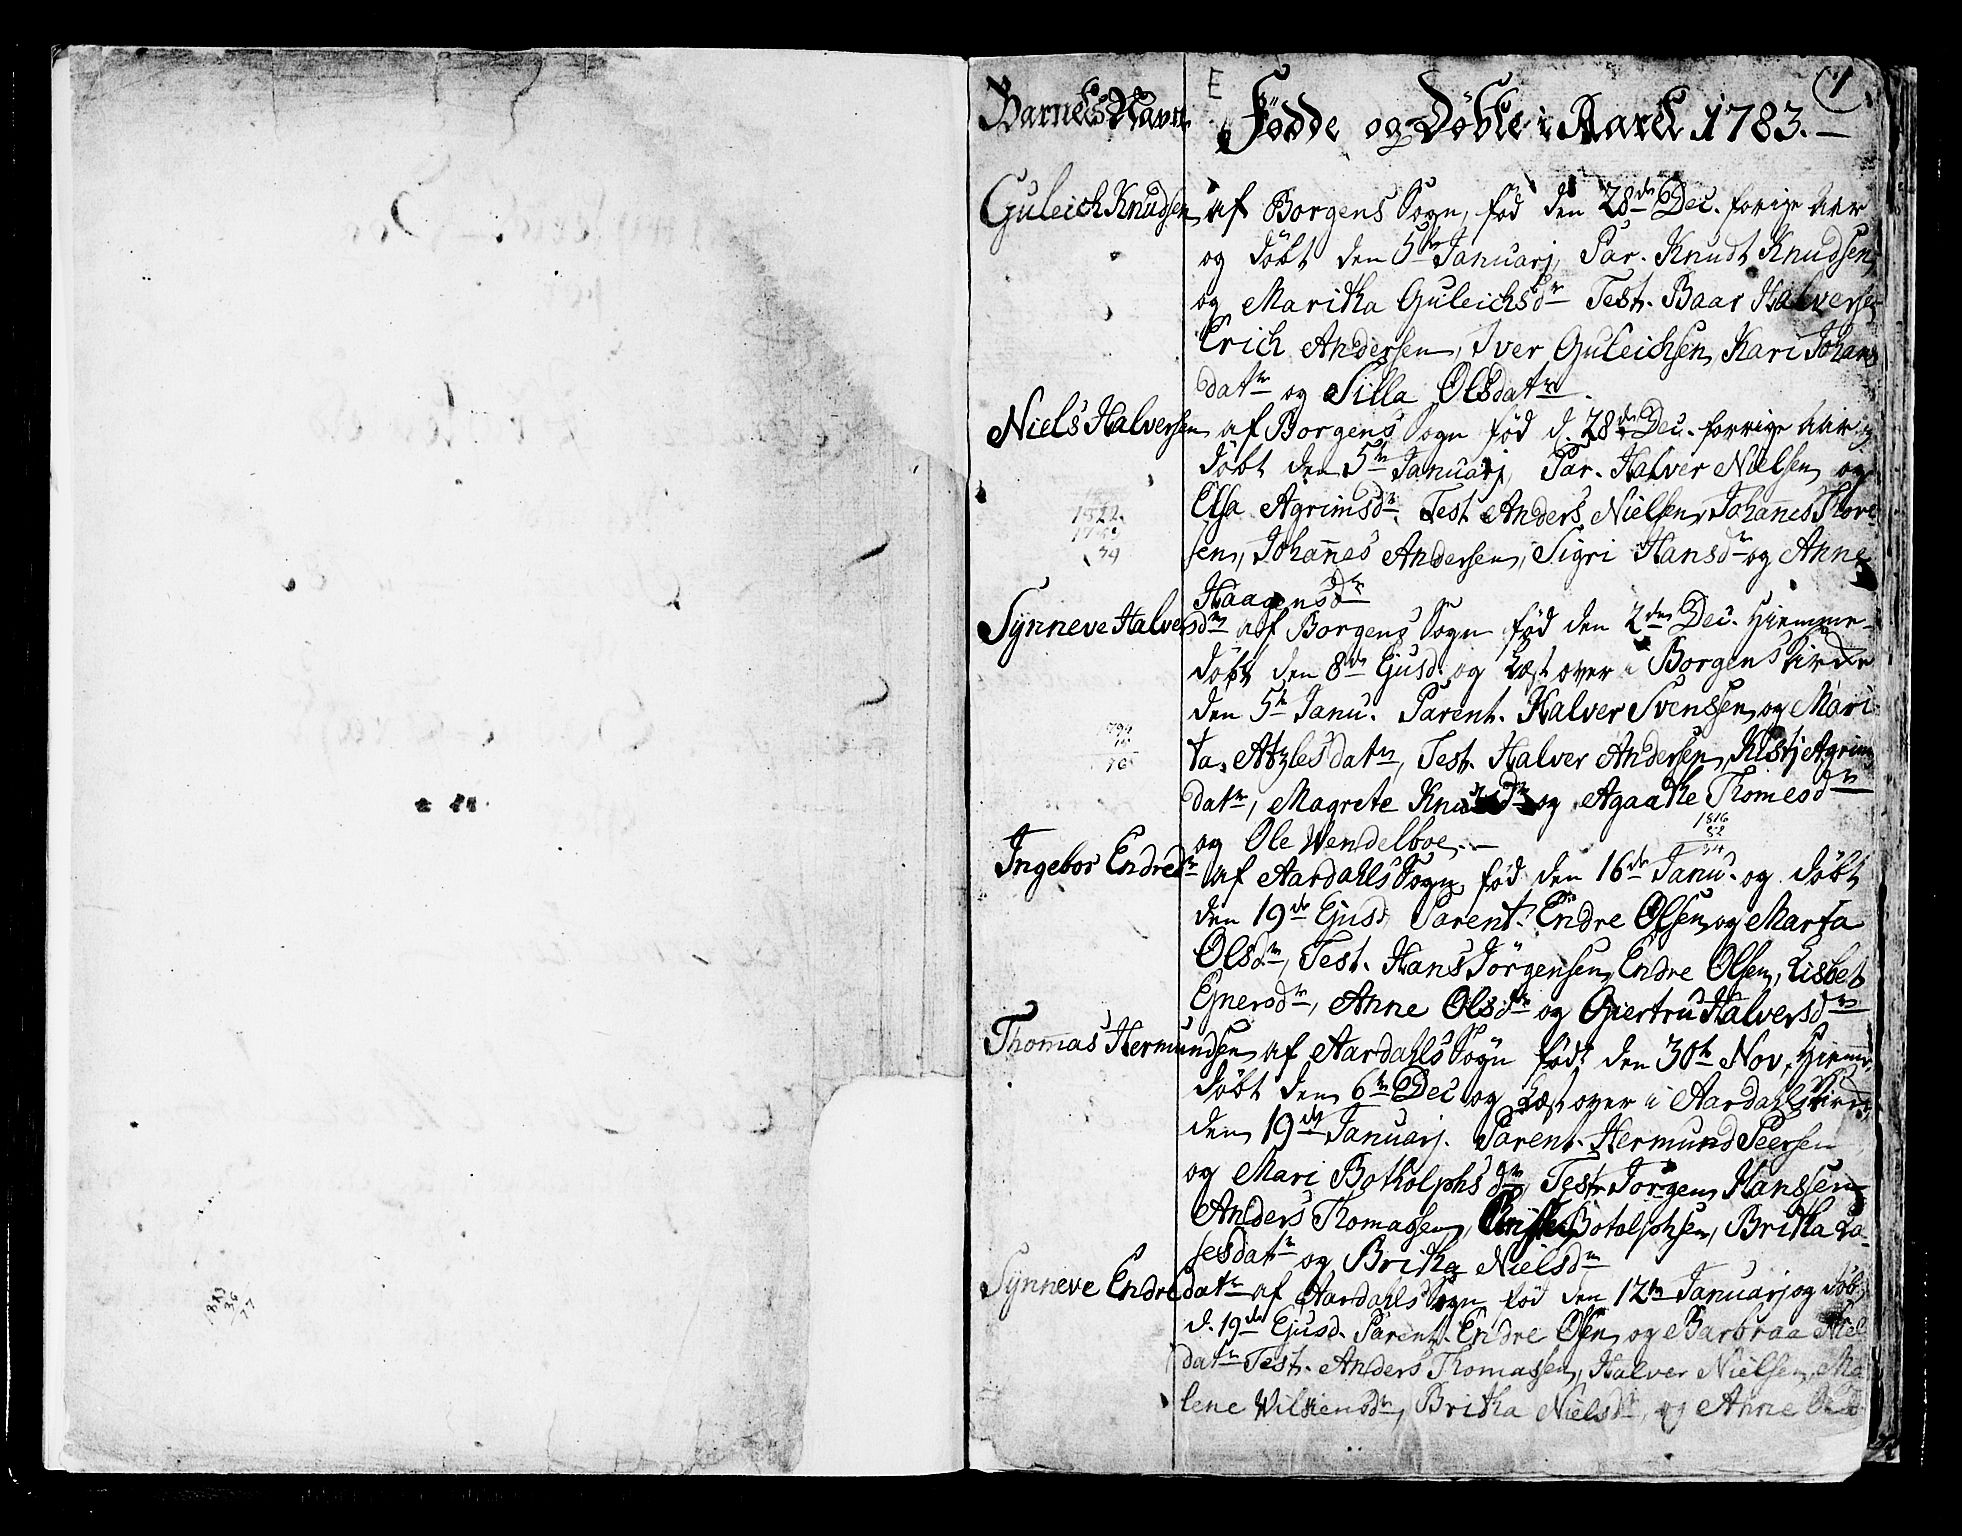 1
E
Barnets Navn Födde og Döbte i Aaret 1783.
Guleich Knudsen af Borgens Sogn, fød den 28de Dec. forige Aar
og døbt den 5te Januarj, Par. Knudt Knudsen,
og Maritha Guleichsdr Test. Baar Halversen
Erich Andersen, Iver Guleichsen, Kari Johans
datr og Silla Olsdatr.
Niels Halversen af Borgens Sogn fød d. 28de Dec. forrige Aar og
døbt den 5te Januarj, Par. Halver Nielsen og
Elsa Agrimsdr. Test. Anders Nielsen, Johannes Thore
sen, Johannes Andersen, Sigri Hansdr og Anne
Haagensdr
Synneve Halversdr af Borgens Sogn fød den 2den Dec. Hiemme-
døbt den 8de Ejusd. og Læst over i Borgens Kirche
den 5te Janu. Parent. Halver Svensen og Mari
ta Atzlesdatr, Test. Halver Andersen, Kistj Agrims
datr, Magrete Knudsdr og Agaathe Thomesdr
og Ole Wendelboe.
Ingebor Endresdr af Aardahls Sogn, fød den 16de Janu. og døbt
den 19de Ejusd Parent. Endre Olsen og Marta
Olsdr, Test. Hans Jörgensen, Endre Olsen, Lisbet
Ejnersdr, Anne Olsdr og Giertru Halversdr
Thomas Hermundsen af Aardahls Sogn født den 30te Nov. Hiemme
døbt den 6te Dec og Læst over i Aardahls Kirche
den 19de Januarj. Parent. Hermund Peersen
og Mari Botholphsdr, Test. Jörgen Hanssen
Anders Thomassen, Botolphsen, Britha La-
sesdatr og Britha Nielsdr
Synneve Endredatr af Aardahls Sogn fød den 12te Januarj og døbt
d. 19de Ejusd. Parent. Endre Olsen og Barbraa Niels
datr Test. Anders Thomassen, Halver Nielsen, Ma
lene Wilhiensdr, Britha Nielsdr, og Anne
1822
1783
39
1816
82
34
1813
36
77